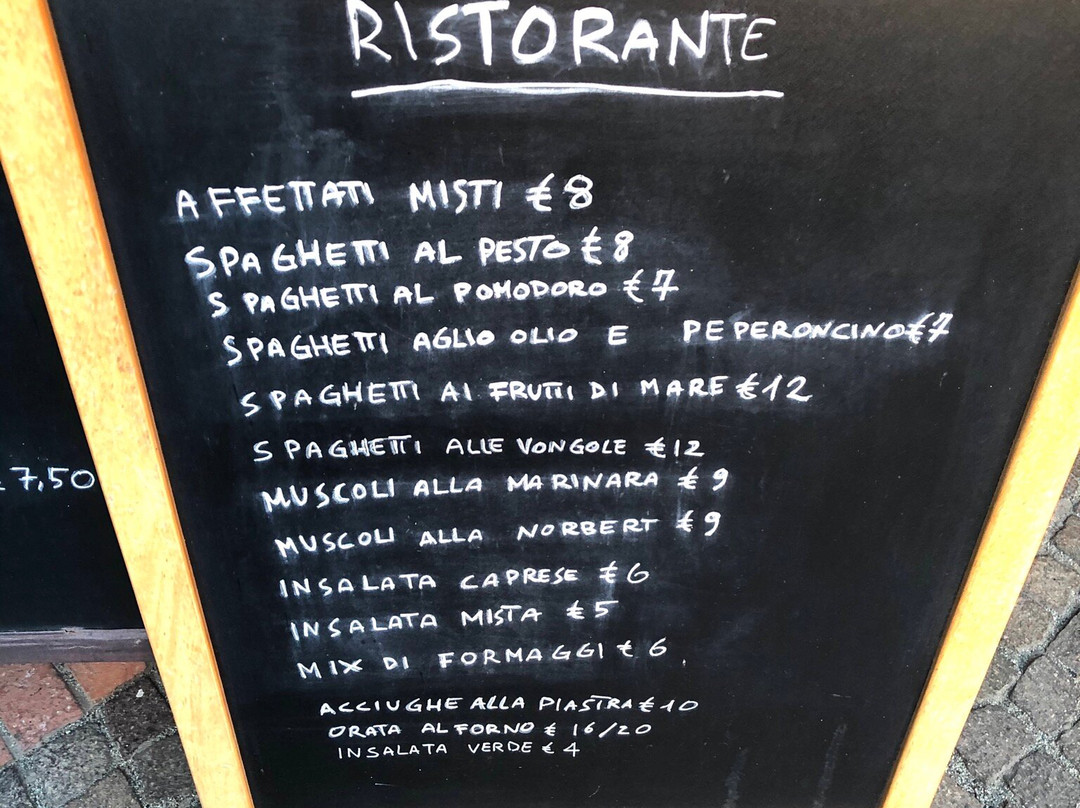 RISTORANTE
AFFETTATI MISTI € 8
SPAGHETTI AL PESTO € 8
SPAGHETTI AL POMODORO € 7
SPAGHETTI AGLIO OLIO E PEPERONCINO € 7
SPAGHETTI AI FRUTTI DI MARE € 12
SPAGHETTI ALLE VONGOLE € 12
MUSCOLI ALLA MARINARA € 9
MUSCOLI ALLA NORBERT € 9
INSALATA CAPRESE € 6
INSALATA MISTA € 5
MIX DI FORMAGGI € 6
ACCIUGHE ALLA PIASTRA € 10
ORATA AL FORNO € 16/20
INSALATA VERDE € 4
€ 7,50